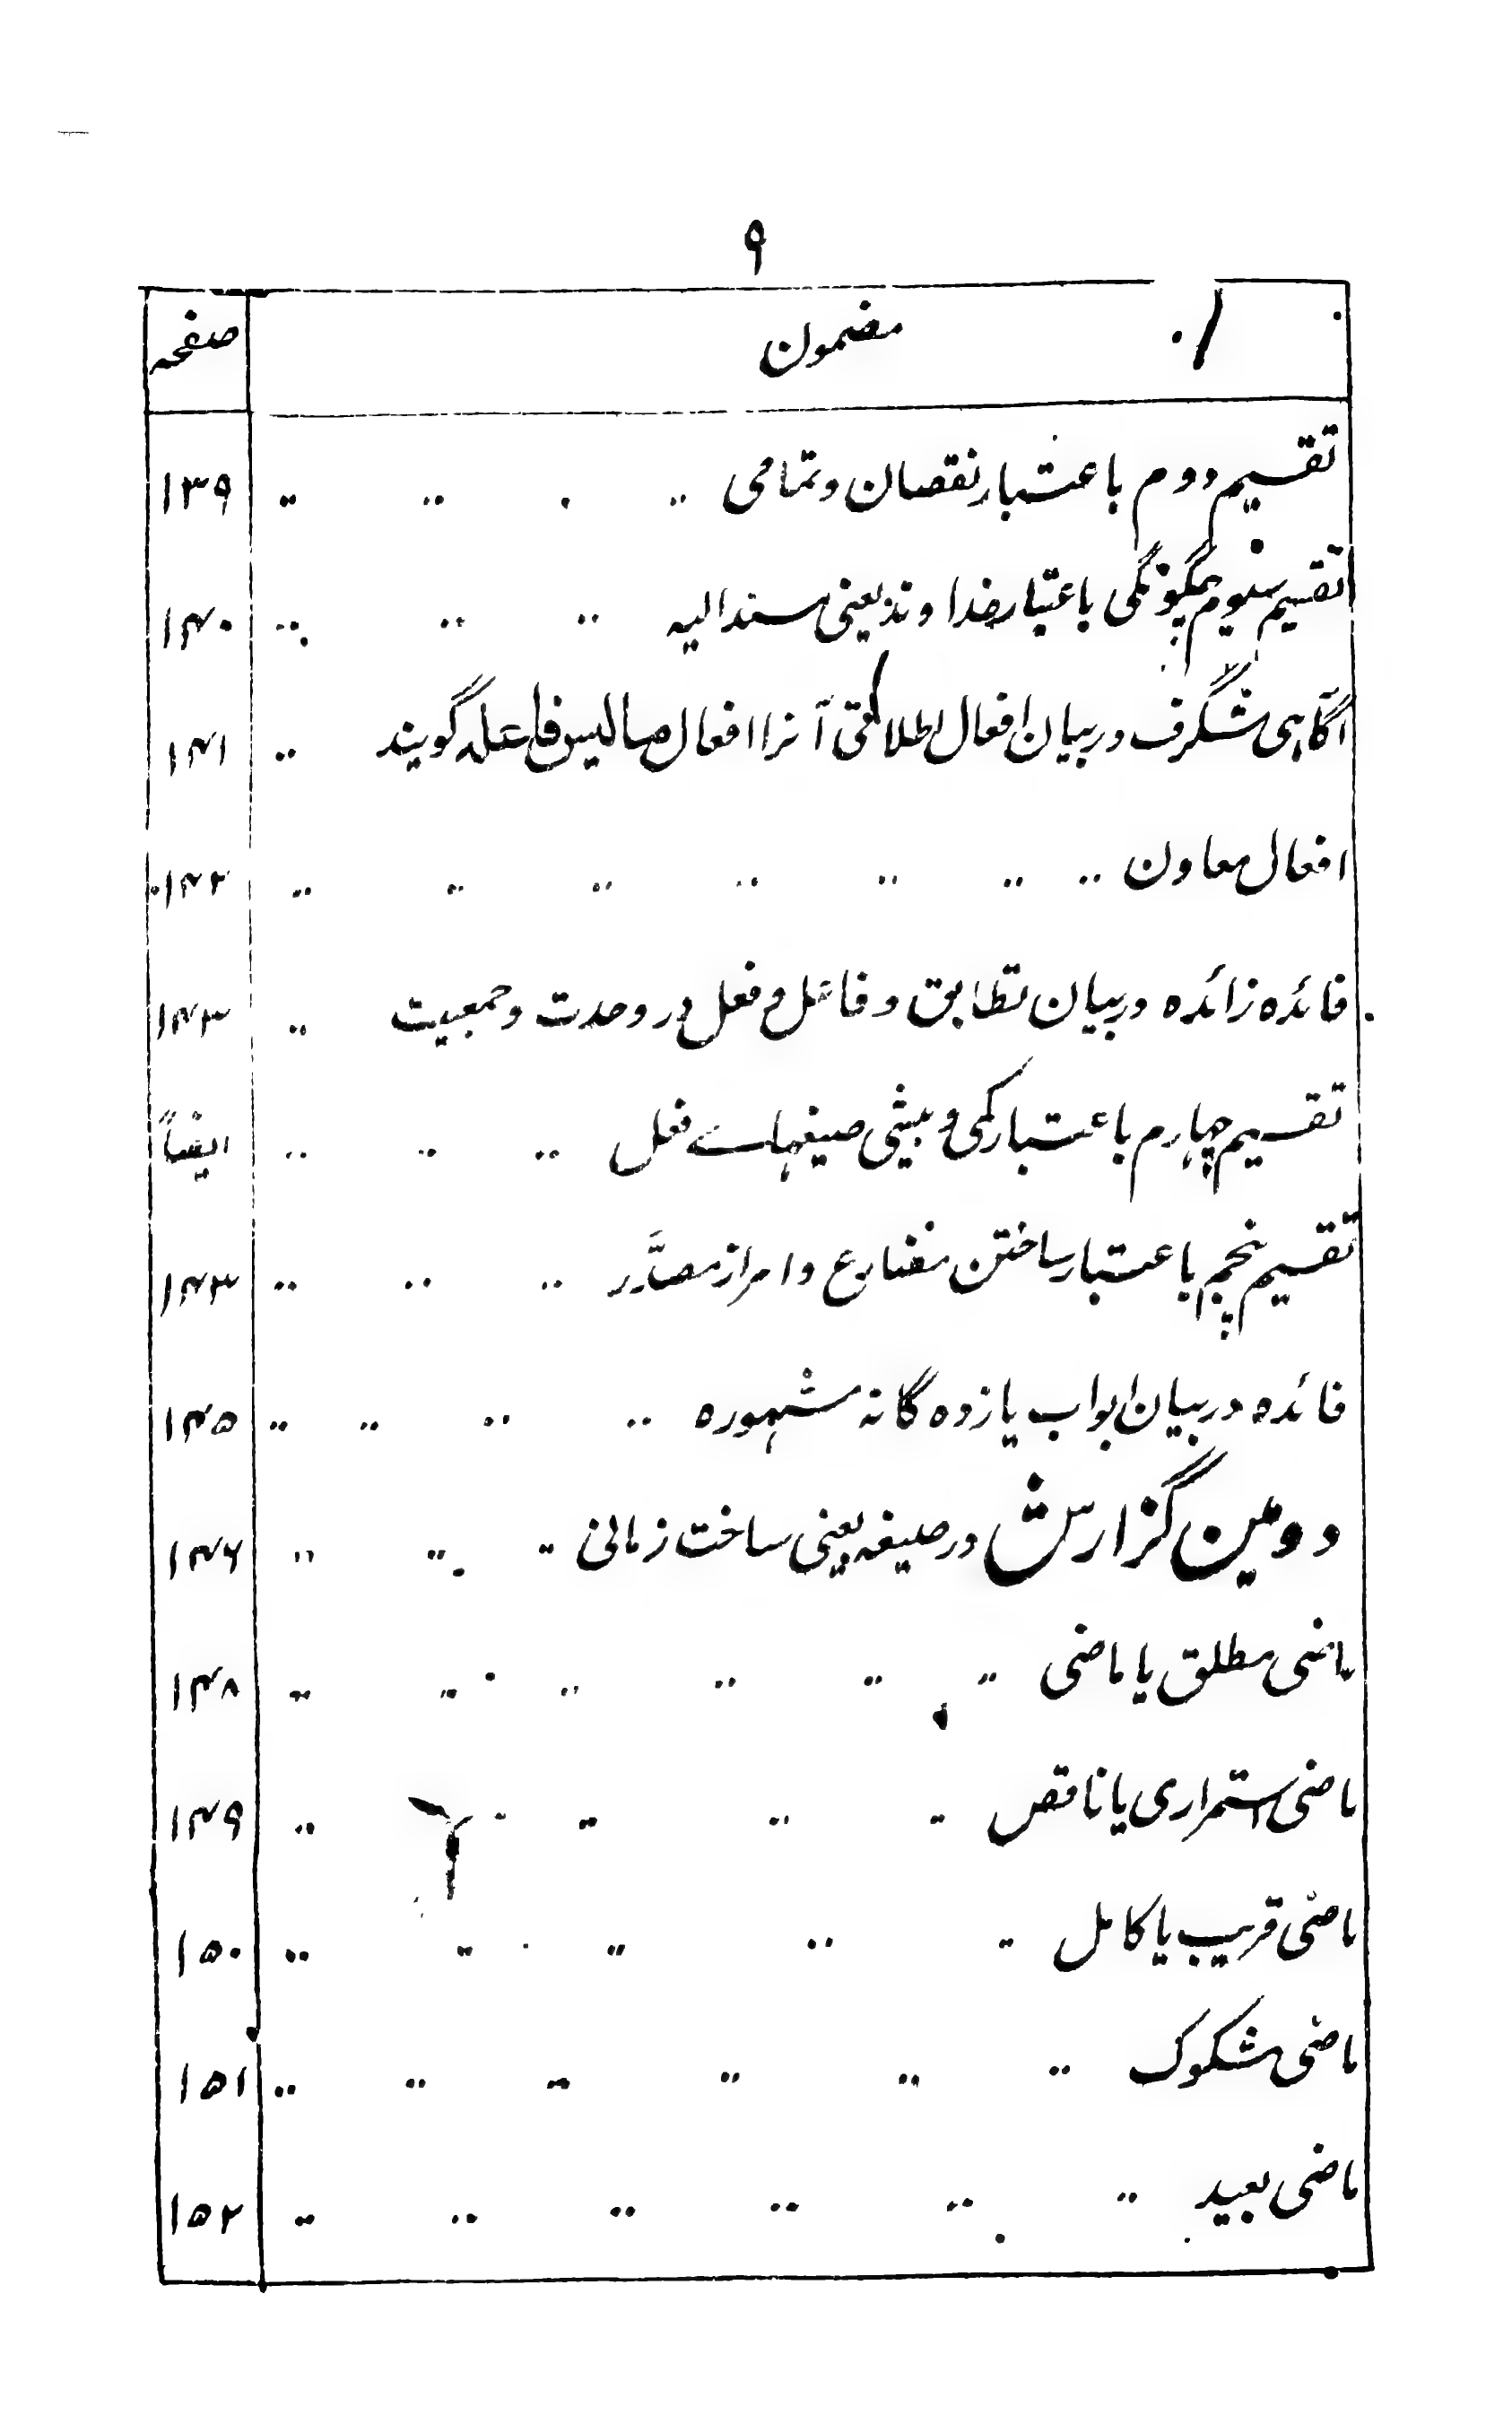 ۹
مضمون صفحہ
تقسیم دوم باعتبار نقصان و تمامی ۱۳۹
تقسیم سیوم چگونگی باعتبار خداوند یعنی مسند الیہ ۱۴۰
آگاہی شگرف در بیان افعال اطلاقی آنرا افعال مالیس فاعلہ گویند ۱۴۱
افعال معاون ۱۴۲
فائدہ زائدہ در بیان تطابق و فاعل و فعل در وحدت و جمعیت ۱۴۳
تقسیم چہارم باعتبار کمی و بیشی صیغہاے فعل ایضاً
تقسیم پنجم باعتبار ساختن مضارع و امر از مصدر ۱۴۳
فائدہ در بیان ابواب یازدہ گانہ مشہورہ ۱۴۵
دومین گزارش در صیغہ یعنی ساخت زمانی ۱۴۶
ماضی مطلق یا ماضی ۱۴۸
ماضی استمراری یا ناقص ۱۴۹
ماضی قریب یا کامل ۱۵۰
ماضی مشکوک ۱۵۱
ماضی بعید ۱۵۲